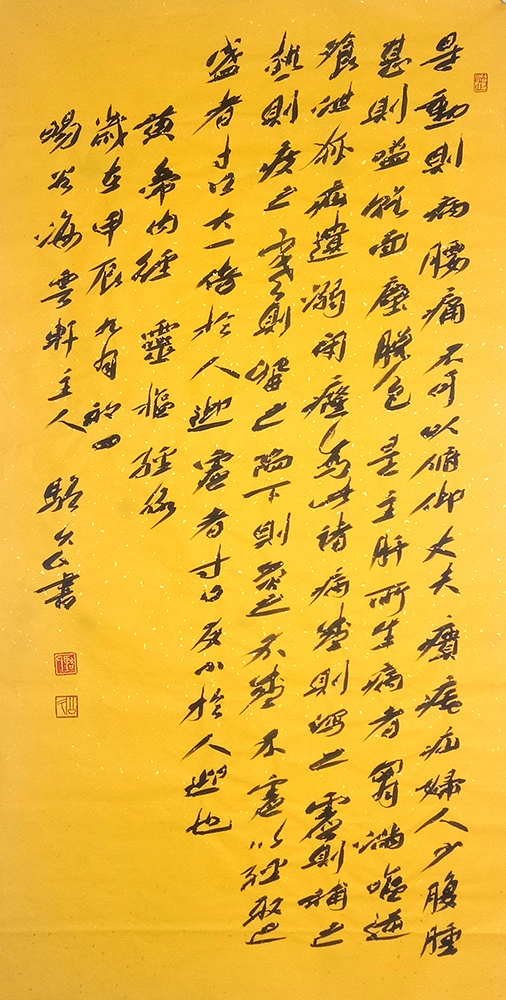 是動則病腰痛不可以俯仰丈夫㿉疝婦人少腹腫
甚則嗌乾面塵脫色是主肝所生病者胷滿嘔逆
飧泄狐疝遺溺閉癃為此諸病盛則瀉之虛則補之
熱則疾之寒則留之陷下則灸之不盛不虛以經取之
盛者寸口大一倍於人迎虛者寸口反小於人迎也
黃帝內經靈樞經脈
歲在甲辰九月初四
暘谷海雲軒主人駱公書